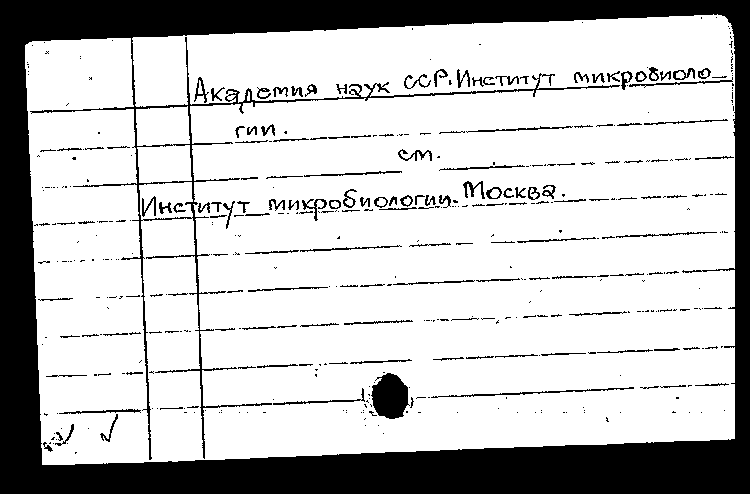 Академия наук ССР. Институт микробиоло
гии.
см.
Институт микробиологии. Москва.